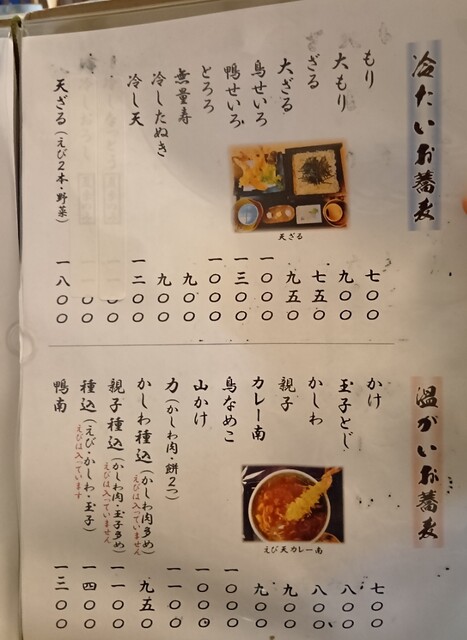 冷たいお蕎麦
もり 七〇〇
大もり 九〇〇
ざる 七五〇
大ざる 九五〇
鳥せいろ 一〇〇〇
鴨せいろ 一三〇〇
とろろ 一〇〇〇
無量寿 九〇〇
冷したぬき 九〇〇
冷し天 一二〇〇
天ざる(えび2本・野菜) 一八〇〇
天ざる
温かいお蕎麦
かけ 七〇〇
玉子とじ 八〇〇
かしわ 八〇〇
親子 九〇〇
カレー南 九〇〇
鳥なめこ 一〇〇〇
山かけ 一〇〇〇
力(かしわ肉・餅2つ) 一一〇〇
かしわ種込(かしわ肉多め) 九五〇
えびは入っていません
親子種込(かしわ肉・玉子多め) 一一〇〇
えびは入っていません
種込(えび・かしわ・玉子) 一四〇〇
えびは入っています
鴨南 一三〇〇
えび天カレー南